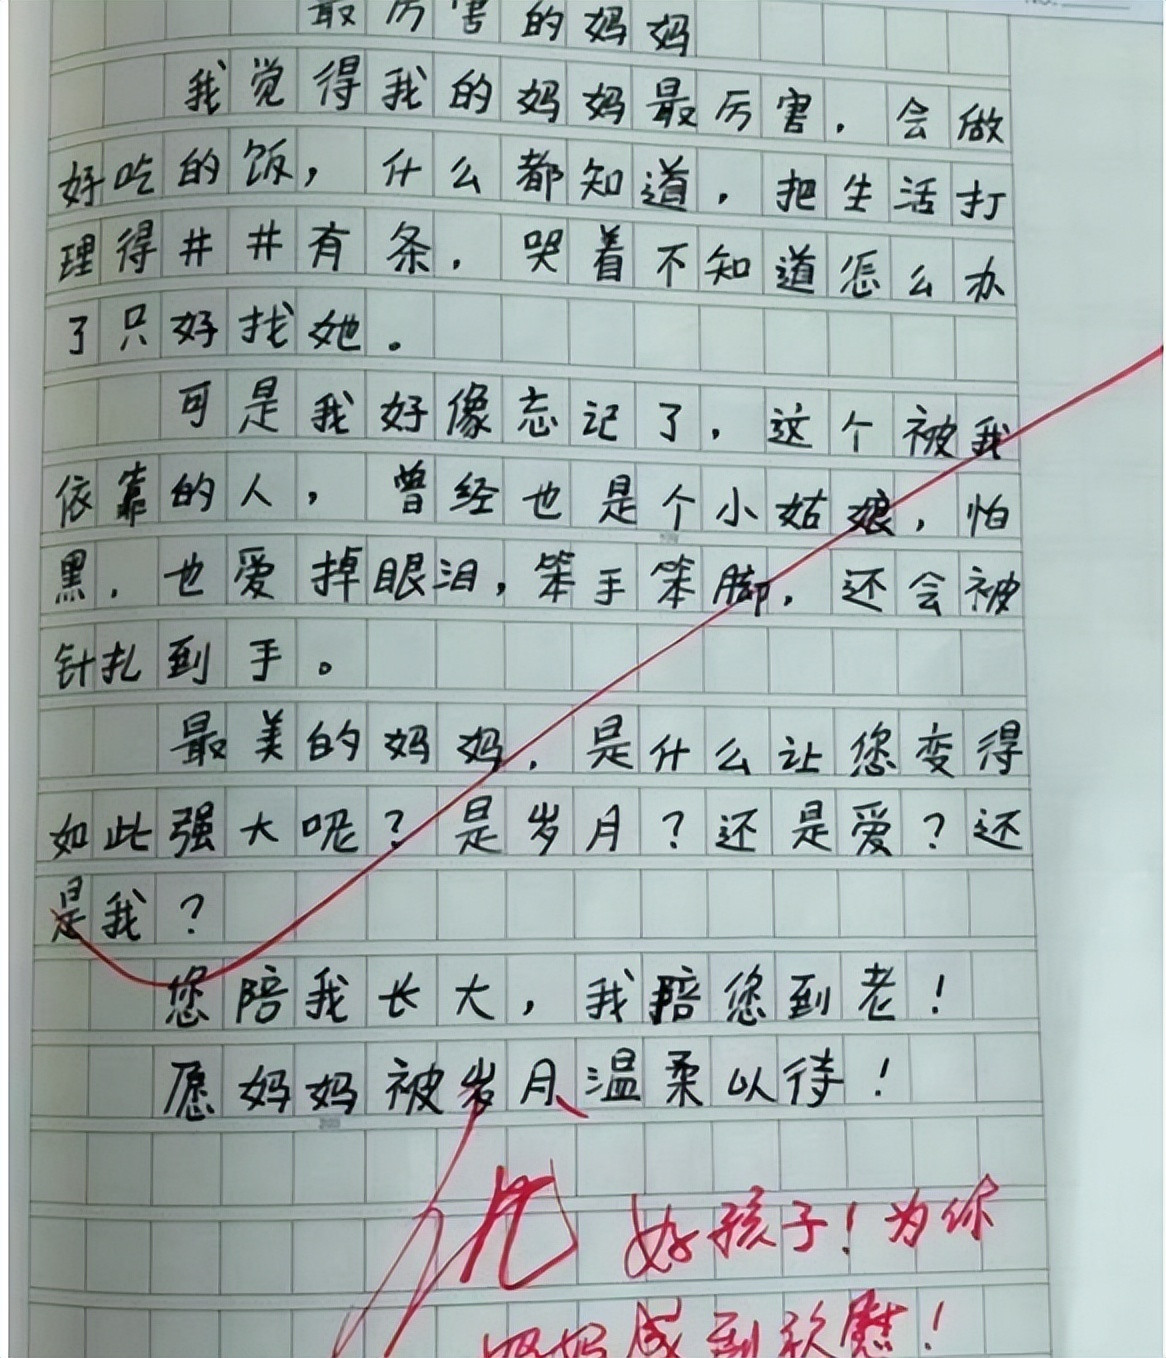 最厉害的妈妈
我觉得我的妈妈最厉害，会做
好吃的饭，什么都知道，把生活打
理得井井有条，哭着不知道怎么办
了只好找她。
可是我好像忘记了，这个被我
依靠的人，曾经也是个小姑娘，怕
黑，也爱掉眼泪，笨手笨脚，还会被
针扎到手。
最美的妈妈，是什么让您变得
如此强大呢？是岁月？还是爱？还
是我？
您陪我长大，我陪您到老！
愿妈妈被岁月温柔以待！
优 好孩子！为你
妈妈感到欣慰！